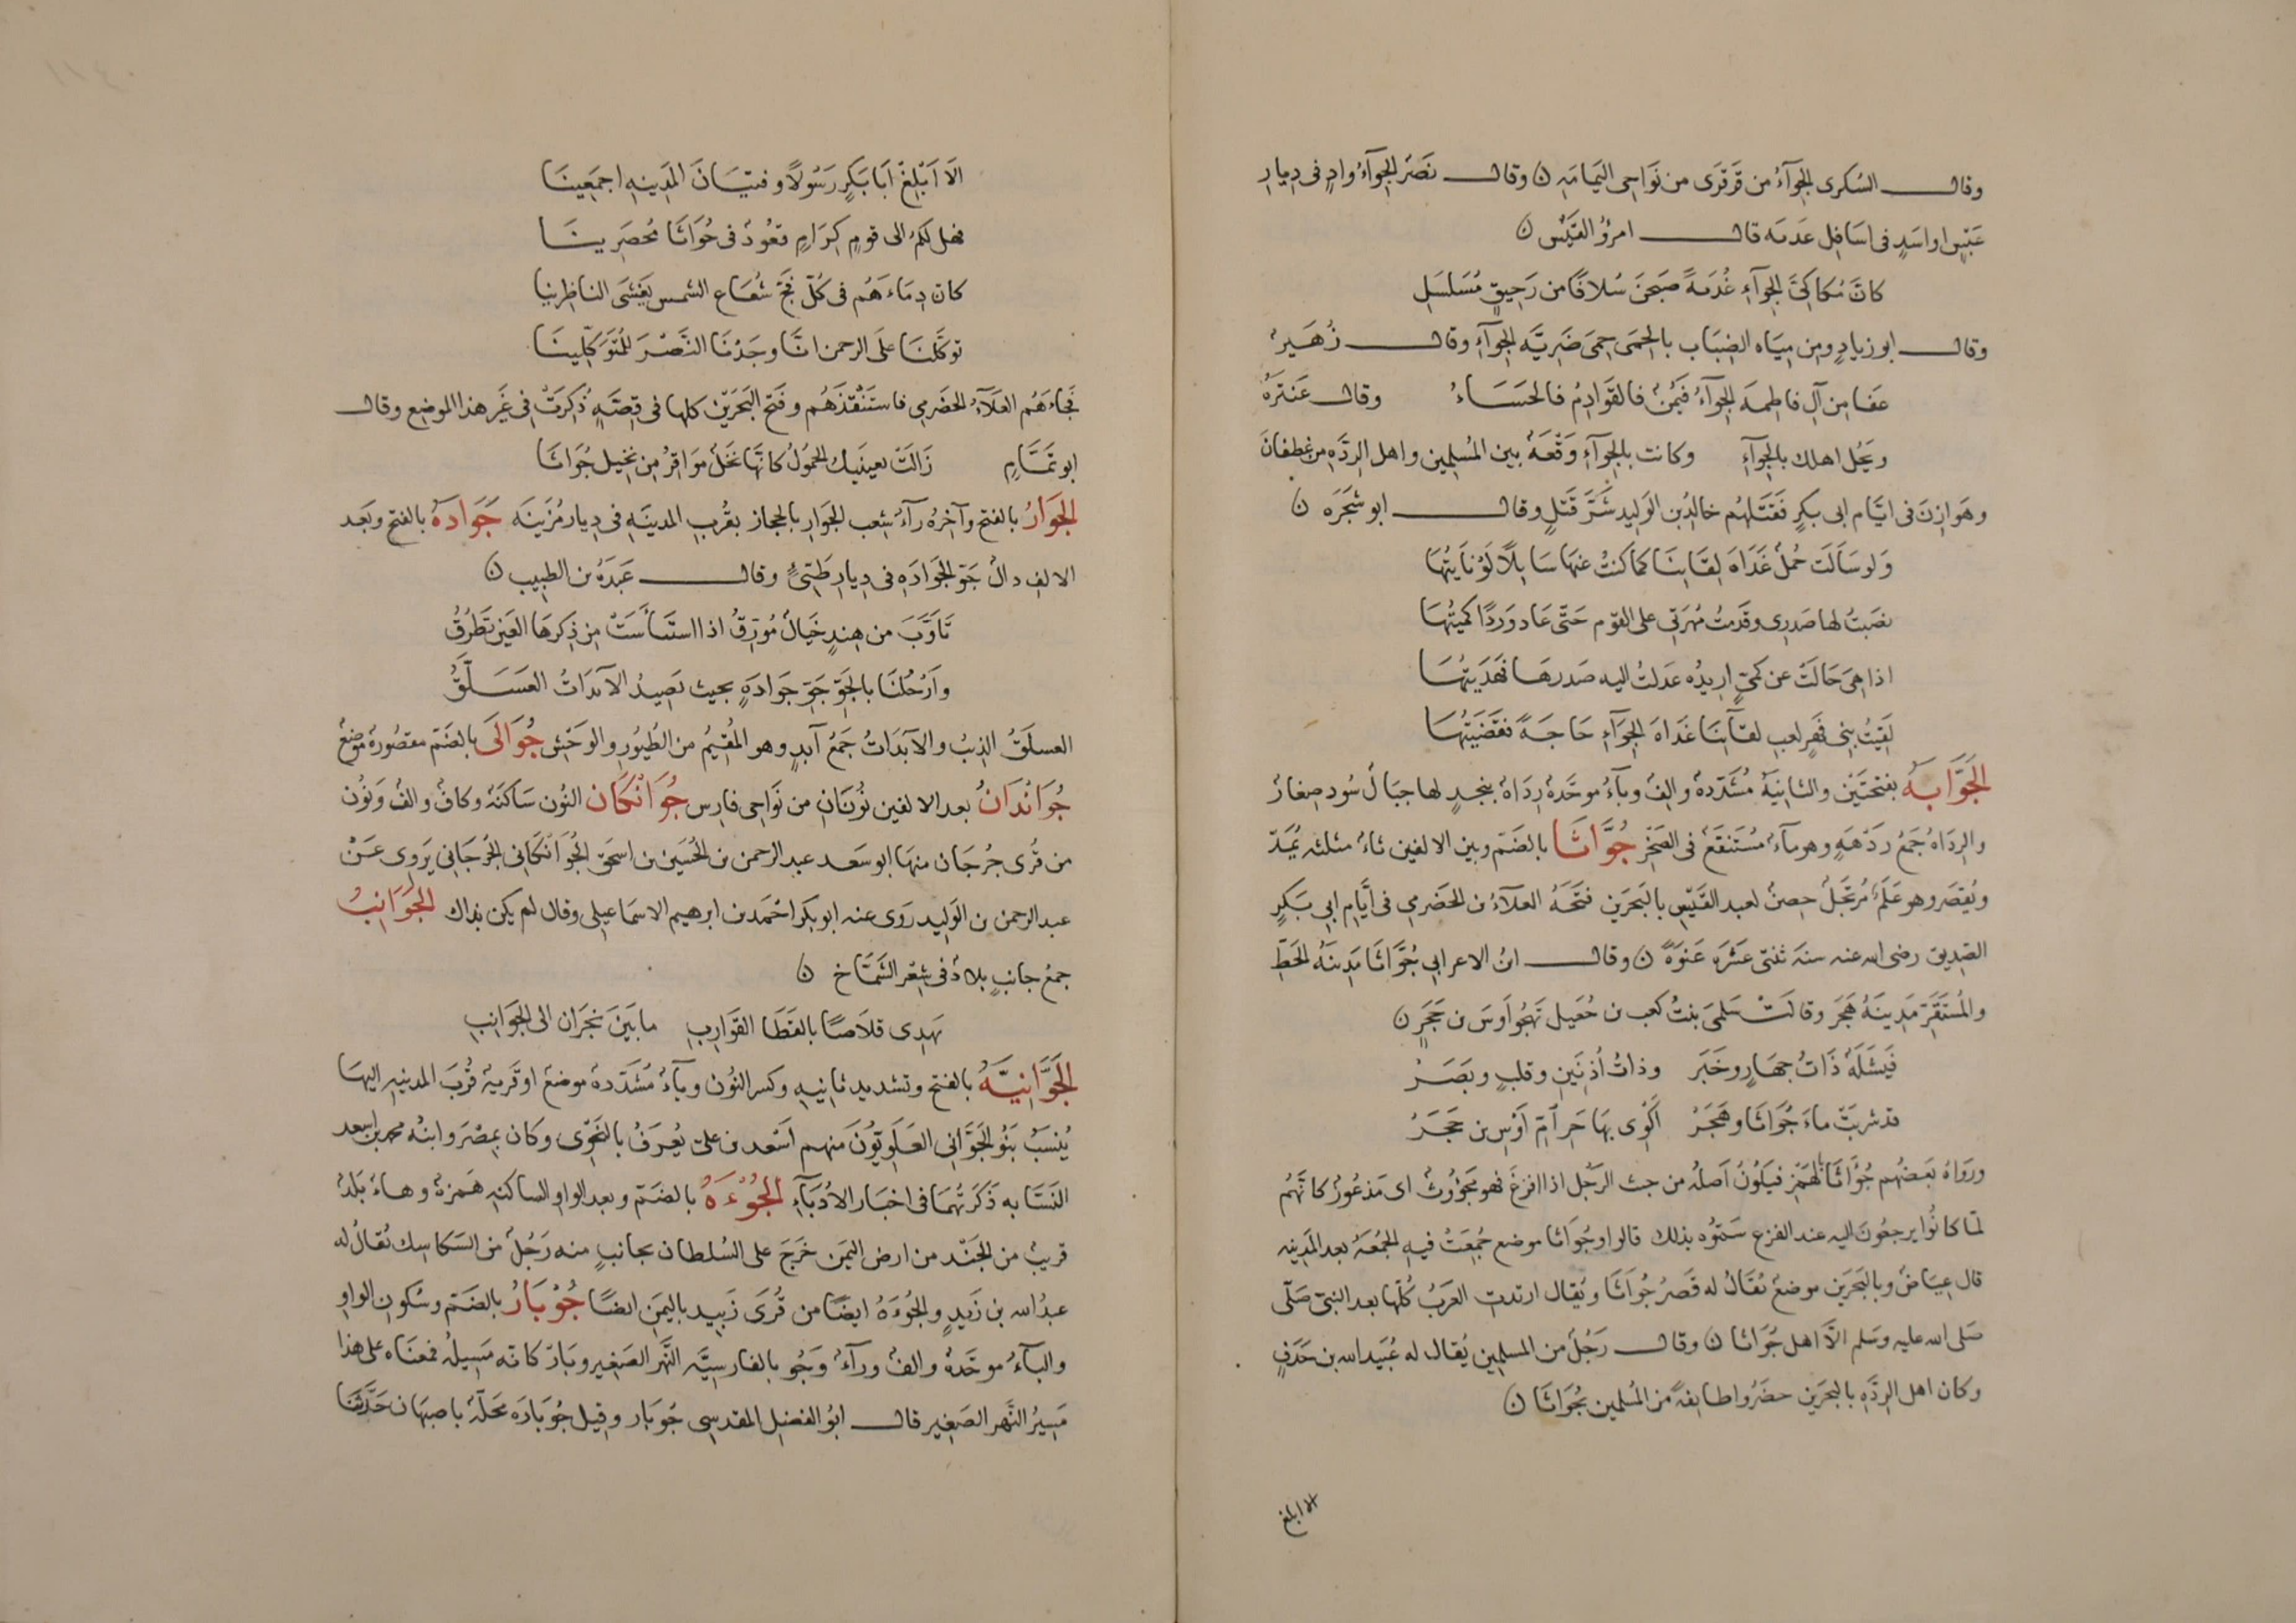 وقال السُكرى الجِوَآءُ من قَرْقَرَى من نَوَاحِى اليَمامَةِ ن وقال نَصْر الجِوَآءُ وادٍ فى دِيارِ
عَبْسٍ اواسَدٍ فى اسَافِل عَدَمَه قال امرؤ القَيْس ن
كانَّ مُكاكِىَّ الجِوَآءِ غُدَيَّةً صَبَحْنَ سُلافًا من رَحِيقٍ مُسَلسَلِ
وقال ابو زيادٍ ومن مِيَاه الضِبَاب بالحِمَى حِمَى ضَرِيَّه الجِوَآءِ وقال زُهَيرُ
عَفا مِن آلِ فاطِمهَ الجِوآءُ فَيُمْنُ فالقَوَادِمُ فالحَسَاءُ وقال عَنترَةُ
ويَحُل اهلك بالجِوَآءِ وكانت بالجِوَآءِ وَقْعَهُ بين المُسلِمين واهل الرِدَّه من غطفانَ
وهَوازِنَ فى ايَّام ابى بكرٍ فَقَتَلهُم خالدُ بن الوَلِيد شَرَّ قَتْلٍ وقال ابو شجَرَه ن
وَلو سَاَلَت جُمْلُ غَدَاةَ لِقَائِنَا كما كنتُ عنهَا سَايلاً لَوْنَايتُهَا
نصَبتُ لها صَدرِى وقَدَّمتُ مُهرَتى على القوم حَتّى عَاد وَردًا كميتُهَا
اذا هِىَ حَالَتْ عن كَمِىٍّ ارِيدُه عَدلتُ اليه صَدرهَا فهَدَيتُهَا
لَقِيتُ بنى فِهْرٍ لعب لقآئِنَا غَدَاةَ الجِوَآءِ حَاجَةً فقضَيتُهَا
الجَوَّابَهُ بفتحتَيْن والثانِيَةُ مُشَدَّدهُ والِفُ وبآءُ موحَّدهُ رِدَاهُ بنجدٍ لها جبَالُ سُود صِغارُ
والرِدَاهُ جَمْعُ رَدْهَةٍ وهو مآءُ مُستَنقَعُ فى الصَخْرِ جُوَّاثَا بالضَم وبين الالفين ثاءُ مثلثه يُمَدّ
ويُقصَر وهو عَلَمُ مُرتَجَلُ حِصنُ لعبد القَيْسِ بالبَحرَين فتَحَهُ العلآءُ بن الحَضَرمي فى اَيَّام ابى بَكرٍ
الصِدِيق رضى الله عنه سنه ثنتى عَشرَه عَنوَةً ن وقال ابنُ الاعرابي جُوَّاثَا مَدِينَهُ الخَطِّ
والمُشَقَّرُ مَدِينَهُ هَجَر وقالَتْ سَلمىَ بنتُ كعب بن جُعَيل تَهجُو اَوسَ بن حَجَرٍ ن
فَيشَلَهُ ذَاتُ جِهَارٍ وخَبَر وذاتُ اُذنَينِ وقلبٍ وبصَرْ
قد شربَتْ ماءَ جُوَاثَا وهَجَرْ اَكْوِى بهَا حَر اُمّ اَوْسِ بن حَجَرْ
ورَوَاهُ بَعضُهم جُؤَاثَا بالهَمْز فيكُونُ اَصلُه من جئث الرَجُل اذا فزعَ فهو مَجؤوثُ اى مَذعُورُ كانهُم
لمَّا كانُوا يرجعُونَ اليه عند الفزع سَمَّوُه بذلك قالوا وجُوَاثا موضع جُمِعَتْ فيهِ الجُمُعَهُ بعد المَدِينه
قال عِيَاضُ وبالبَحرَين موضعُ يُقَالُ له قَصرُ جُوَاثَا ويُقال ارتدت العَرَبُ كُلّها بعد النبىّ صَلّى
صَلى الله عليه وسَلم الَّا اهل جُوَاثا ن وقال رَجُلُ من المسلمِين يُقال له عُبَيد الله بن حَذَفٍ
وكان اهل الرِدَّهِ بالبَحرَين حصَرُوا طايفهً من المُسلمين بجُوَاثَا ن
الا ابلغ
الَا اَبْلِغْ اَبَا بَكرٍ رَسُولاً وفتيَانَ المَدِينهِ اجمَعِينَا
فهل لكمُ الى قومٍ كِرَامٍ قعُودُ فى جُوَاثَا مُحصَرِينَا
كان دِمَاءَهُم فى كُلّ فَجّ شُعَاع الشمس يَغشَى الناظِرينا
توكَّلنَا على الرحمن انَّا وجَدْنَا النَّصْرَ للمُتوَكّلِينَا
فجاءَهُم العَلآءُ الحَضرَمِي فاستَنْقَذَهُم وفَتحَ البَحَرَيْن كلها فى قِصَّهٍ ذُكِرَتْ فى غَير هذا الموضِع وقال
ابو تمَّامٍ زَالَتْ بعينَيكَ الحُمُولُ كانَّها نَخلُ مَوَاقِرُ مِن نخِيل جُوَاثَا
الجَوَارُ بالفتح وآخِرُه رآءُ شِعب الجَوَارِ بالحجاز بقُربِ المدينَهِ فى دِيار مُزَينَه جَوَادَهُ بالفتح وبَعد
الالِف دالُ جَوّ الجَوَادَهِ فى دِيارِ طَيّئٍ وقال عَبدَهُ بن الطبِيب ن
تَاَوَّبَ من هِندٍ خيَالُ مُؤَرِّقُ اذا استَيأَسَتْ مِن ذِكرهَا العَين تَطرُقُ
وَاَرْحُلنَا بالجَوّ جَوّ جَوَادَهٍ بحيث يَصِيدُ الآبدَاتُ العَسَلَّقُ
العسلَقُ الذِيبُ والآبَدَاتُ جَمْعُ آبدٍ وهو المُقِيمُ من الطُيُور والوَحْش جُوَالَى بالضَم مقصُورهُ موضِعُ
جُوَانْدَانُ بعد الالفين نُونَانِ من نَوَاحِى فارِس جُوَانْكَان النُون سَاكنَهُ وكافُ والفُ ونُون
من قُرى جُرجَان منهَا ابو سَعد عبد الرحمن بن الحُسَين بن اسحَق الجُوَانْكَانى الجُرجَانِي يَروِى عَنْ
عبد الرحمن بن الوَلِيد رَوى عنه ابو بكر احْمَد بن ابرهيم الاسمَاعِيلى وقال لم يكن بذاك الجَوَانِبُ
جمعُ جانبٍ بلادُ فى شِعْر الشَمَّاخ ن
يَهدِى قلاصًا بالقَطَا القوَارِبِ ما بَينَ نجرَان الى الجَوَانِبِ
الجَوَّانِيَّهُ بالفتح وتشديد ثانِيهِ وكسر النُون ويآءُ مُشَدّدهُ موضعُ او قَريهُ قُربَ المدِينهِ اليهَا
يُنسَبُ بَنُو الجَوَّانى العَلَوِيّوُنَ منهم اَسْعد بن علىّ يُعرَفُ بالنَحْوِى وكان بمِصْرَ وابنُه محمد بن اسعد
النسَّابه ذَكَرتُهمَا فى اخبَار الادَبَآءِ الجُوْءَهُ بالضَمّ وبعد الواو الساكنهِ هَمزهُ وهاءُ بَلدُ
قريبُ من الجَنَد من ارض اليمَن خَرَجَ على السُلطان بجانبٍ منه رَجُلُ من السَكاسِك يُقالُ له
عبدُ الله بن زَيدٍ والجُوءَهُ ايضًا من قُرَى زَبِيد باليمَن ايضًا جُوْبَارُ بالضَمّ وسُكونِ الواوِ
والبآءُ موحَّدهُ والفُ ورآءُ وَجُو بالفارسِيَّه النَّهر الصَغِير وبَارَ كانه مَسِيلُه فمعنَاه على هذا
مَسِيرُ النَّهر الصَغِير قال ابُو الفضل المقدسِى جُوبَار وقِيل جُوبَارَه مَحلّهُ باصبهَان حَدَّثنَا